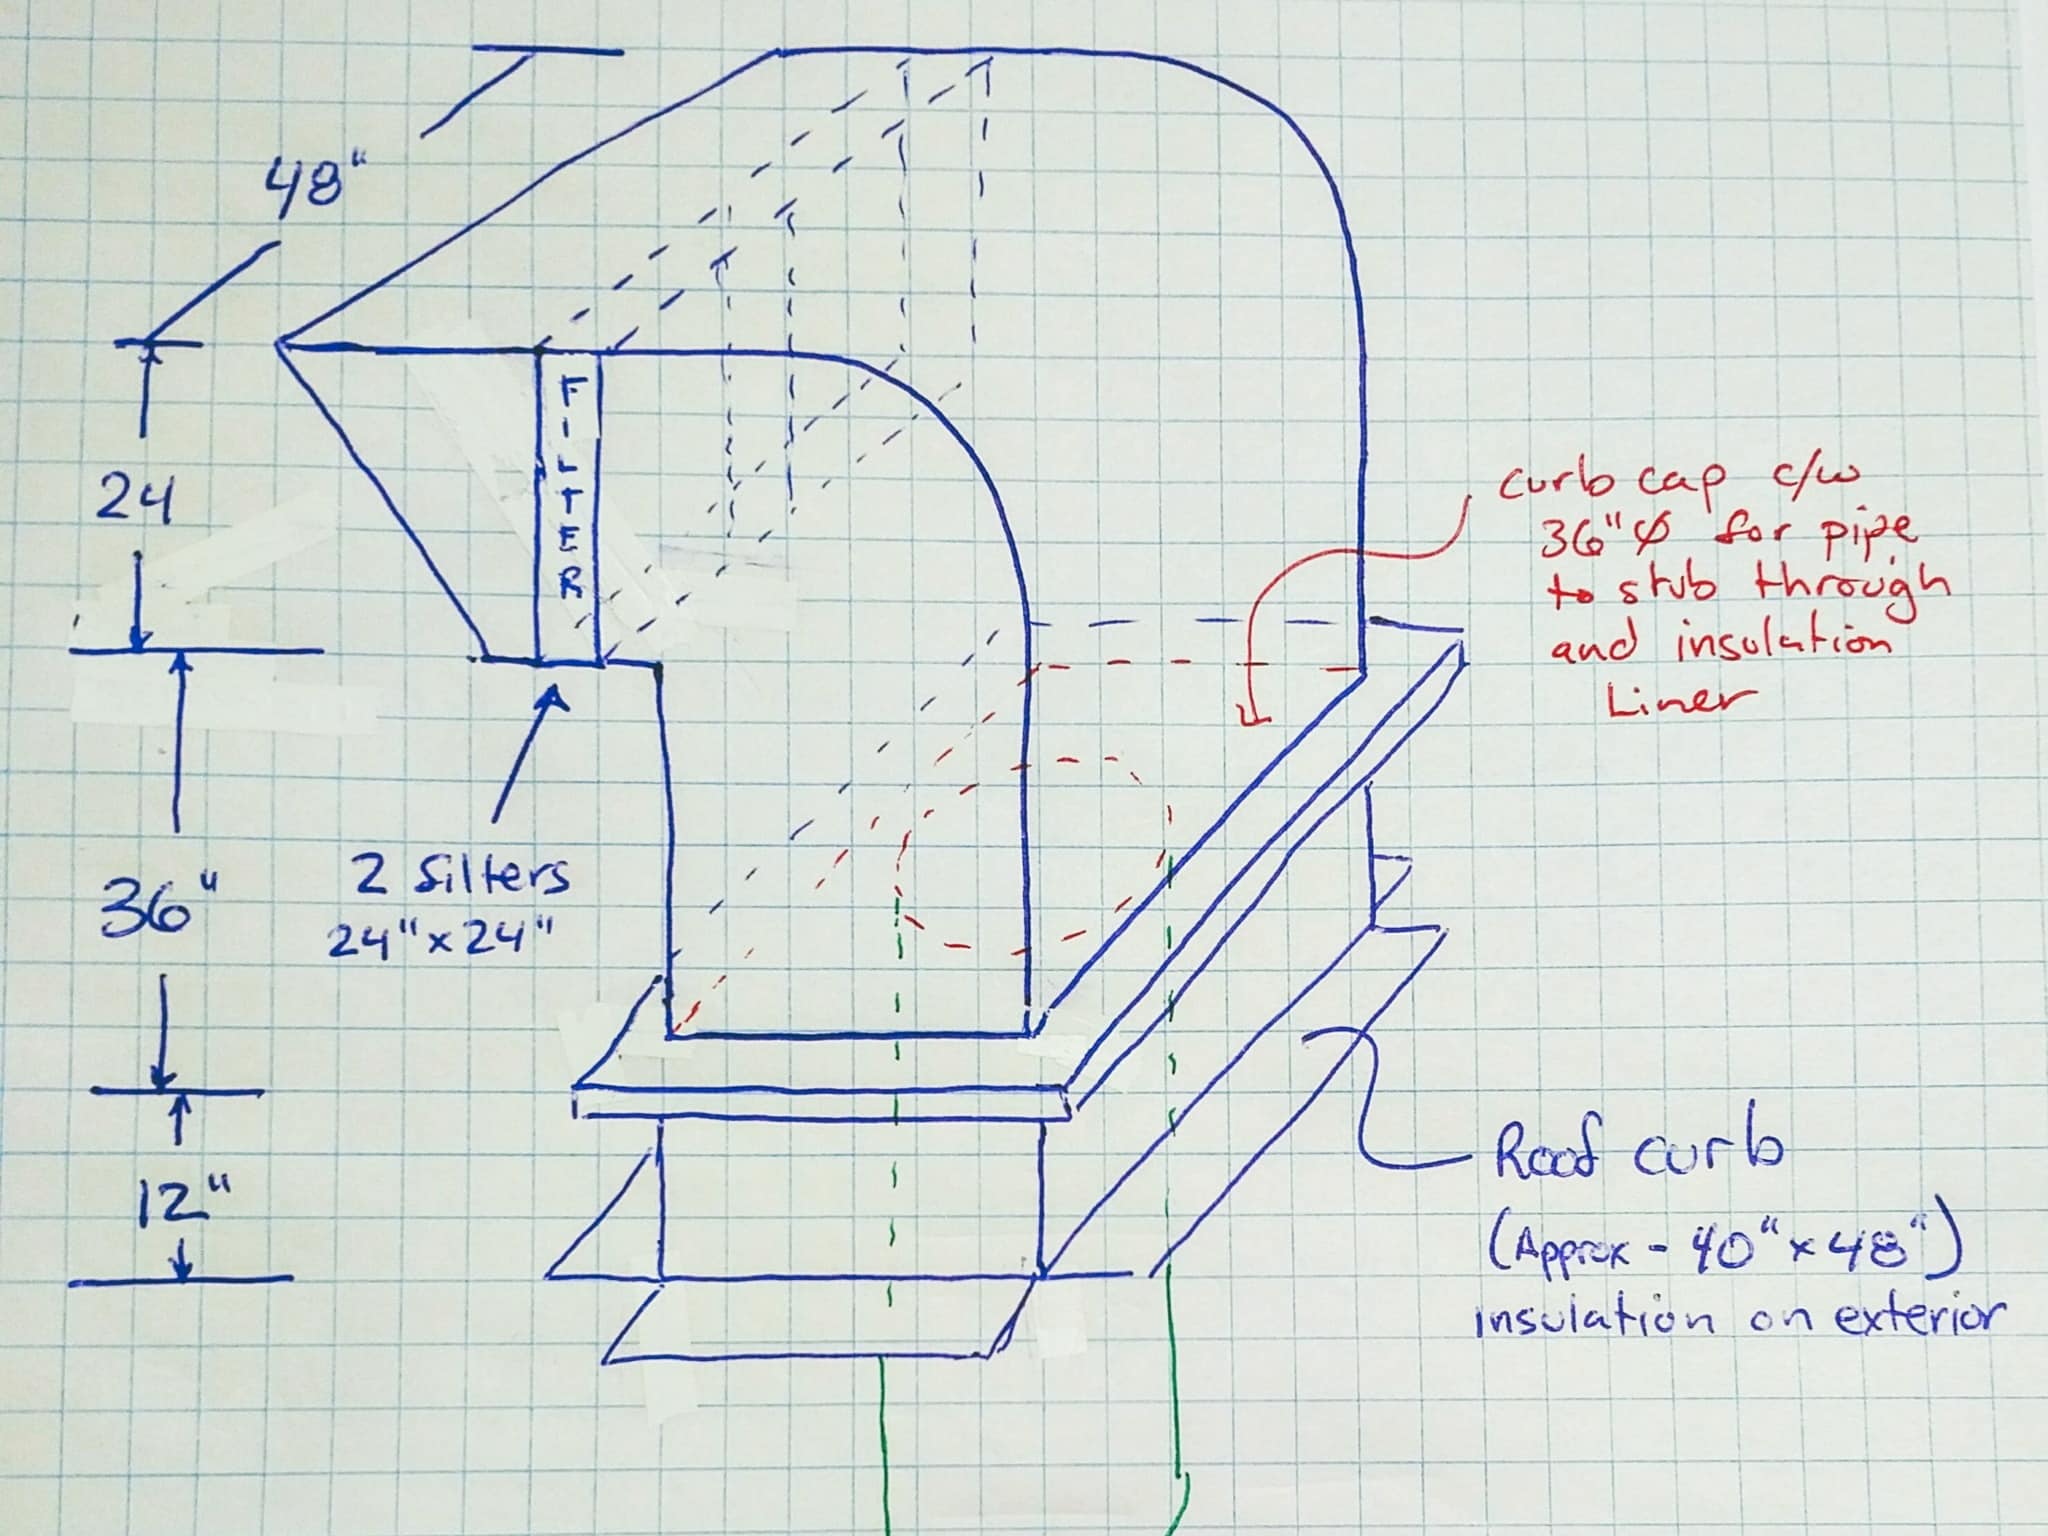 48"
24
36"
12"
FILTER
2 filters
24"x24"
curb cap c/w
36"∅ for pipe
to stub through
and insulation
Liner
Roof curb
(Approx - 40"x48")
insulation on exterior